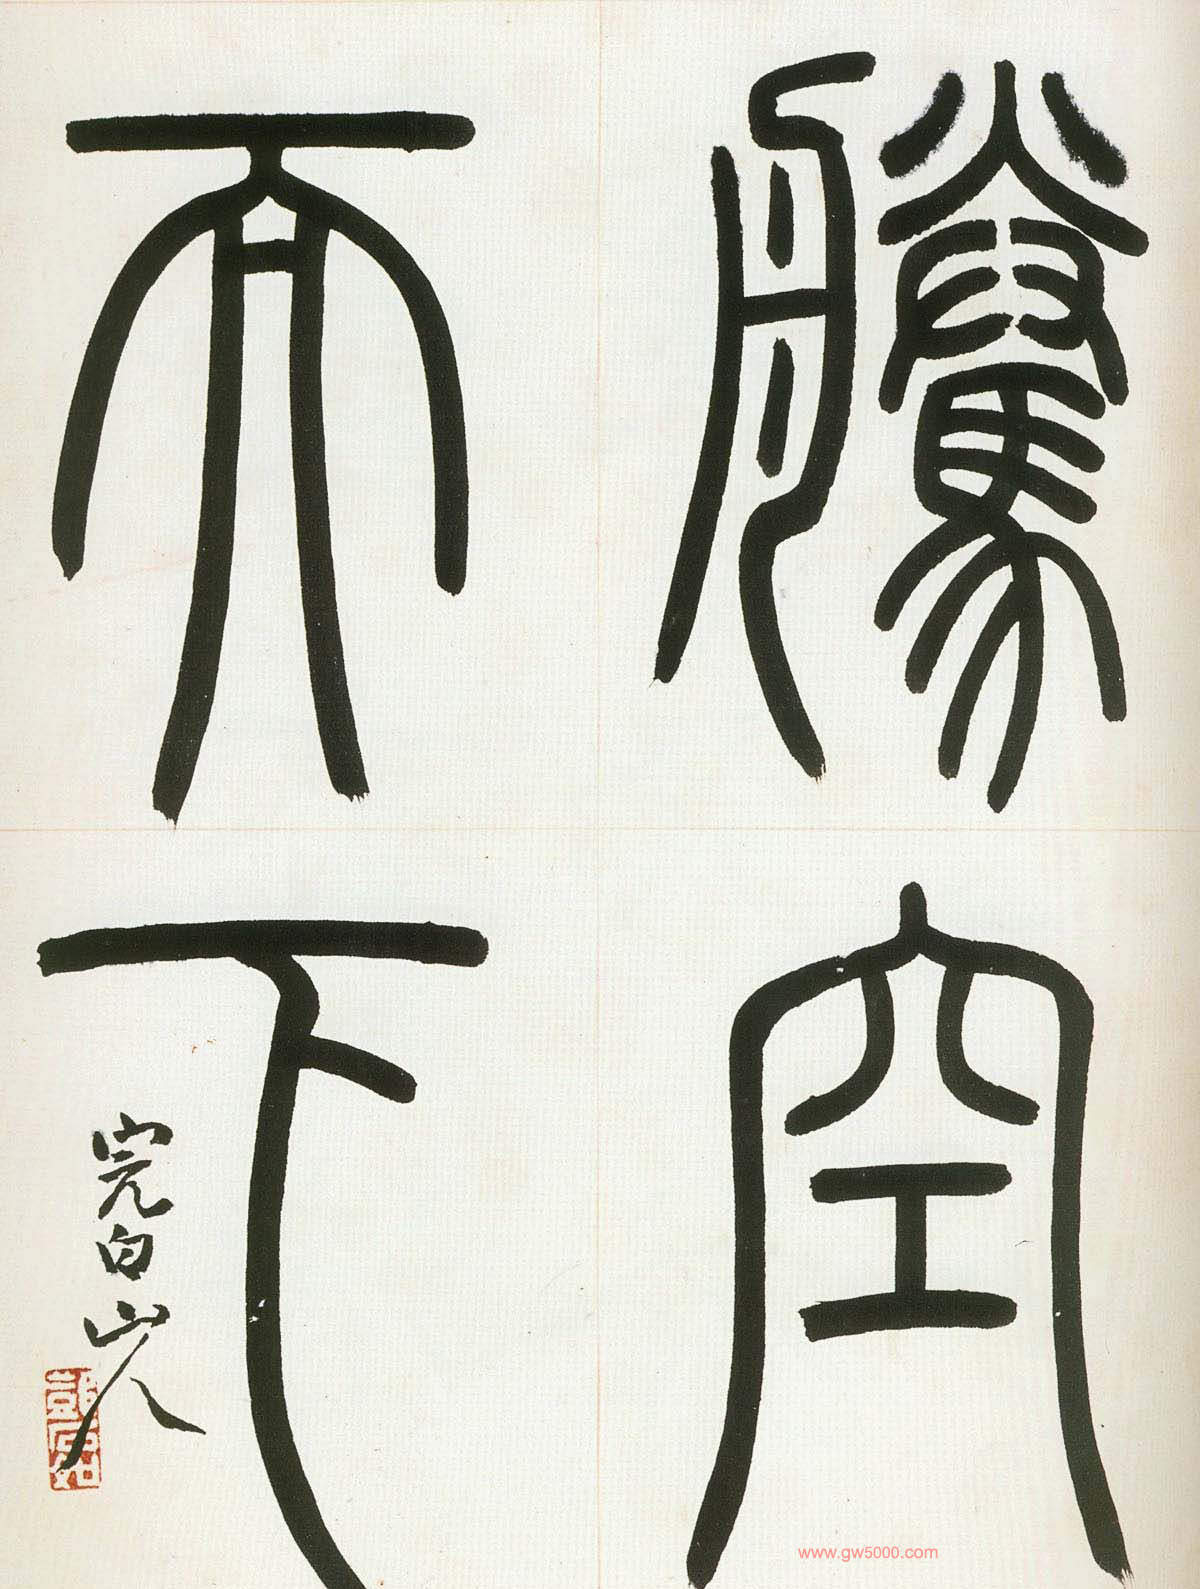 騰空
而下
完白山人
鄧石如
www.gw5000.com